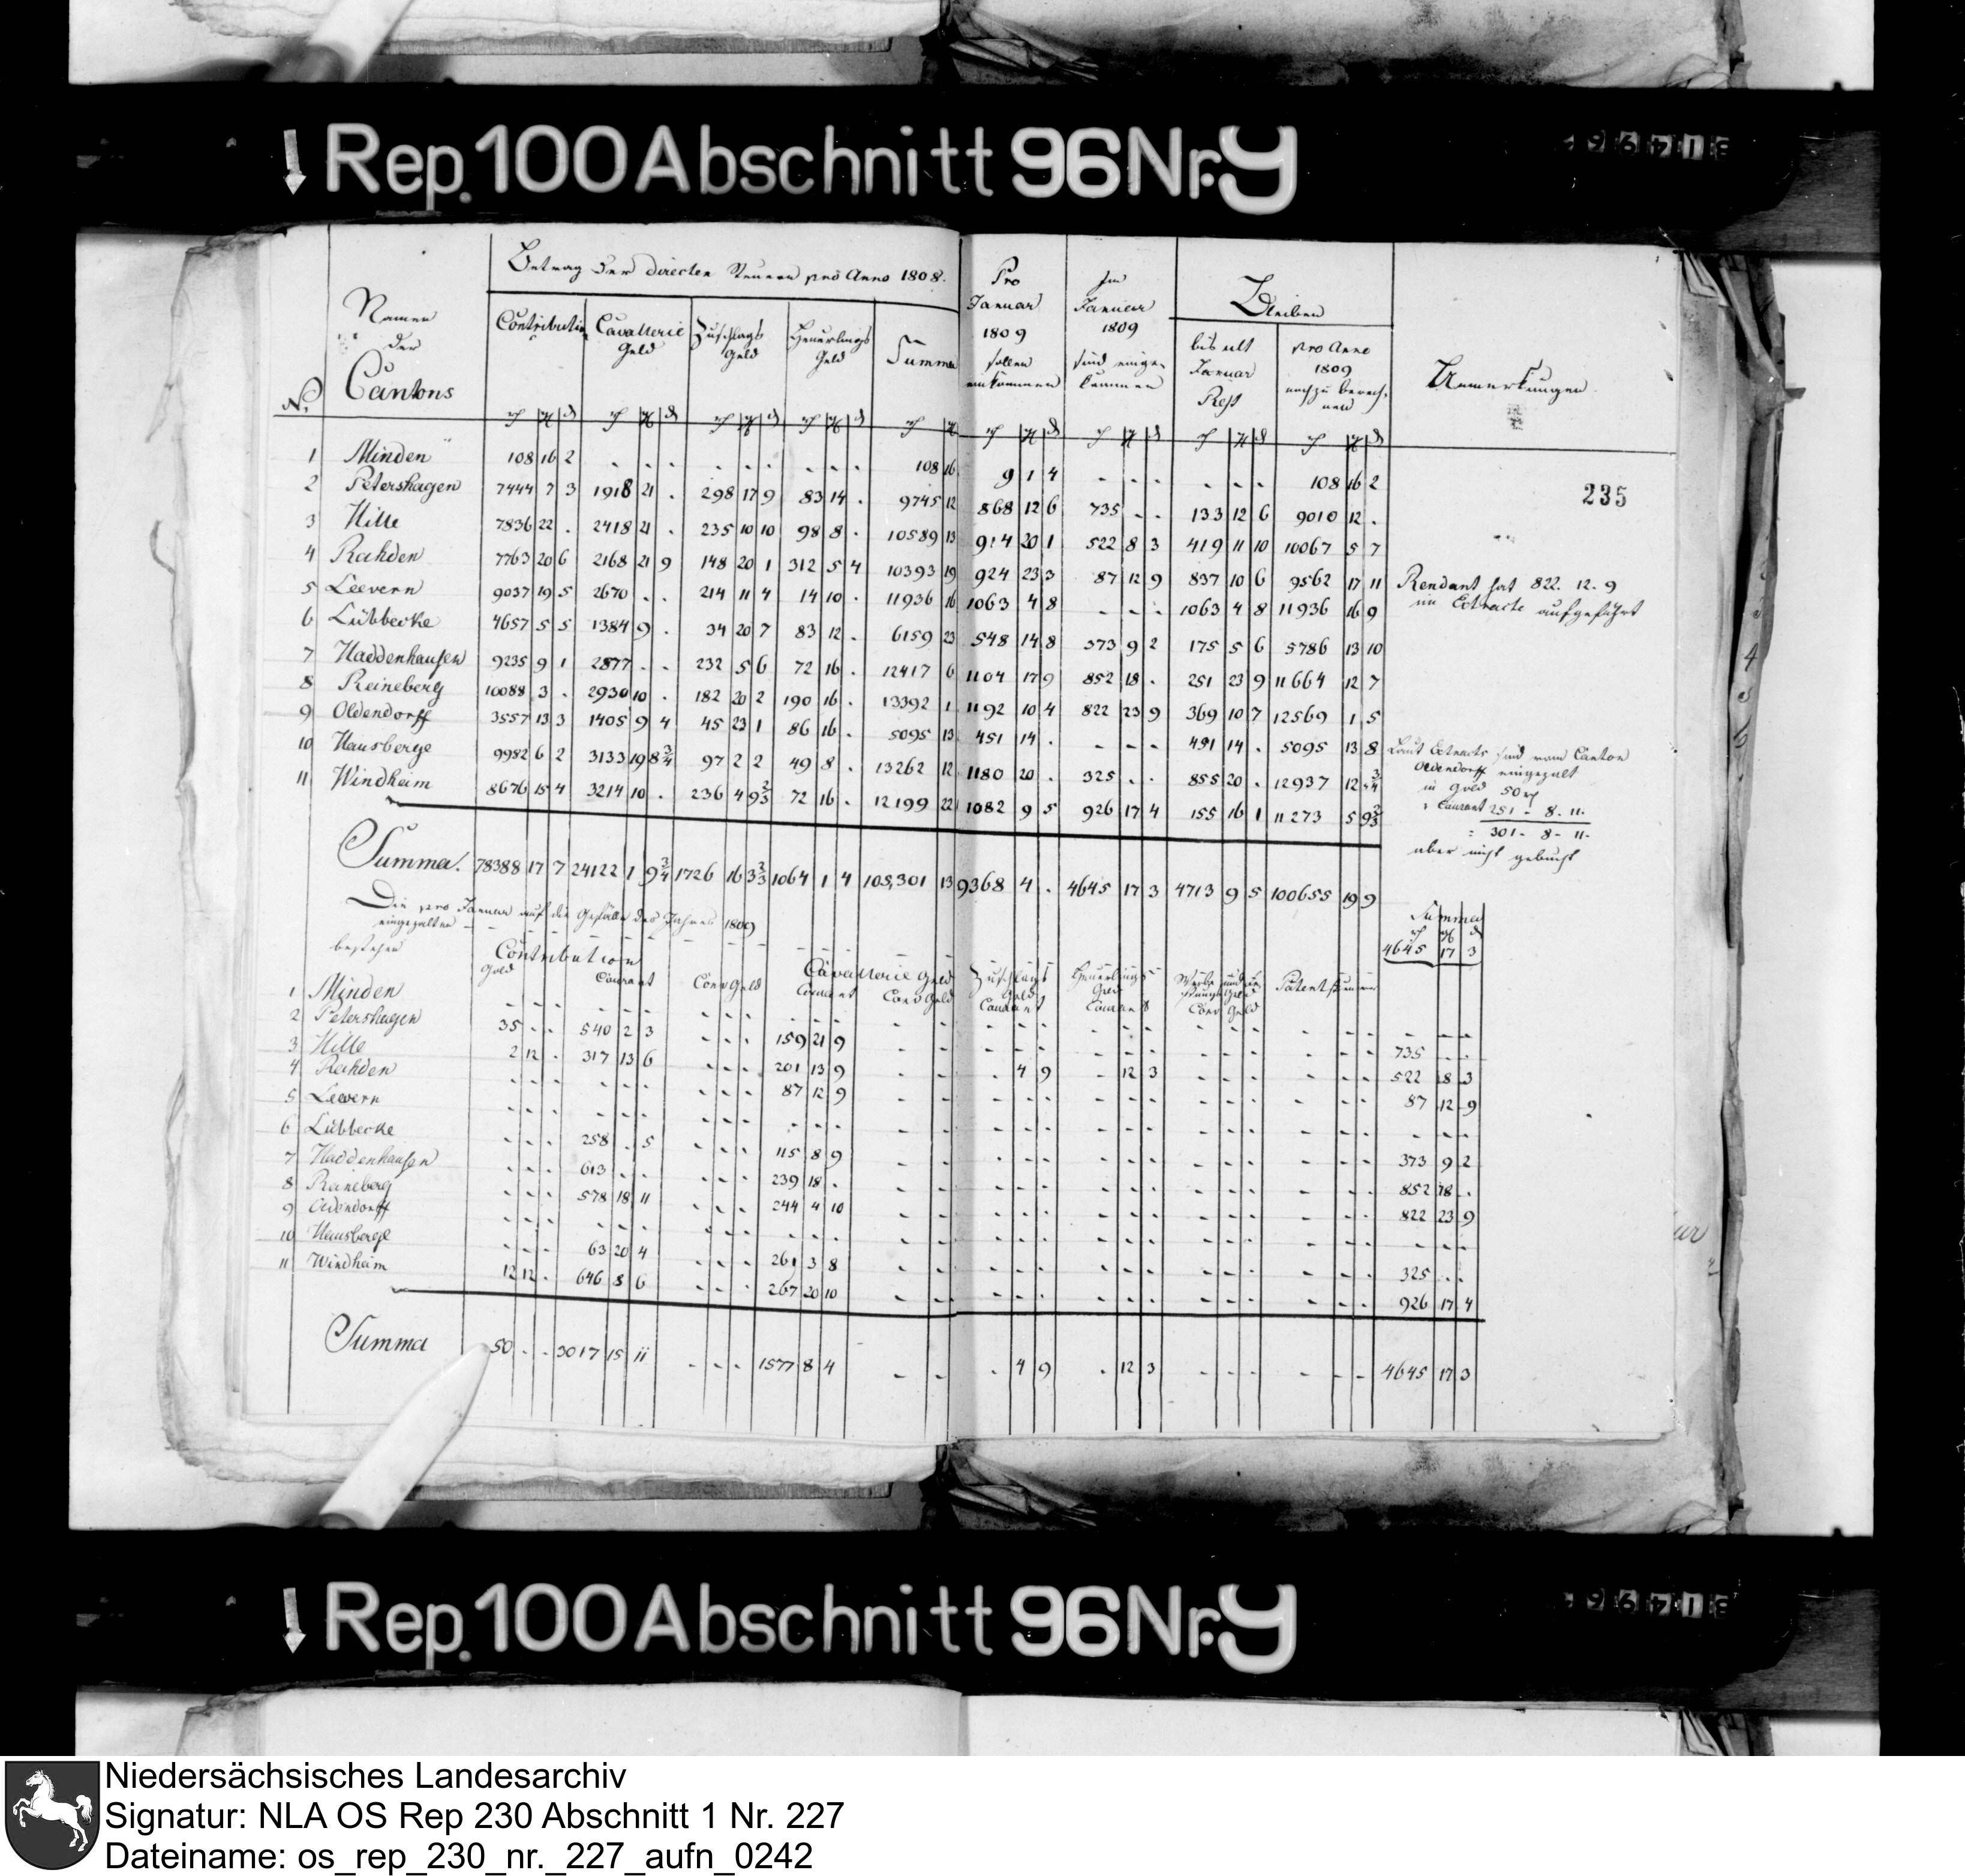 Rep. 100 Abschnitt 96 Nr. 9
31496
Betrag der directen Steuern pro Anno 1808.
Pro Januar 1809 sollen einkommen
Im Januar 1809 sind eingekommen
Bleiben
No. Namen der Cantons
Contribution
Cavallerie Geld
Zuschlags Geld
Heuerlings Geld
Summa
bis ult Januar Rest
pro Anno 1809 noch zu berechnen
Bemerkungen
235
1 Minden 108 16 2 - - - - - - - - - 108 16 9 1 4 - - - - - - 108 16 2
2 Petershagen 7444 7 3 1918 21 . 298 17 9 83 14 . 9745 12 868 12 6 735 - - 133 12 6 9010 12 .
3 Hille 7836 22 . 2418 21 . 235 10 10 98 8 . 10589 13 914 20 1 522 8 3 419 11 10 10067 5 7
4 Rahden 7763 20 6 2168 21 9 148 20 1 312 5 4 10393 19 924 23 3 87 12 9 837 10 6 9562 17 11 Rendant hat 822. 12. 9
im Extracte aufgeführt
5 Leevern 9037 19 5 2670 . . 214 11 4 14 10 . 11936 16 1063 4 8 - - - 1063 4 8 11936 16 9
6 Lübbecke 4657 5 5 1384 9 . 34 20 7 83 12 . 6159 23 548 14 8 373 9 2 175 5 6 5786 13 10
7 Haddenhausen 9235 9 1 2877 . . 232 5 6 72 16 . 12417 6 1104 17 9 852 18 . 251 23 9 11664 12 7
8 Reineberg 10088 3 . 2930 10 . 182 20 2 190 16 . 13392 1 1192 10 4 822 23 9 369 10 7 12569 1 5
9 Oldendorff 3557 13 3 1405 9 4 45 23 1 86 16 . 5095 13 451 14 . - - - 451 14 . 5095 13 8
10 Hausberge 9982 6 2 3133 19 8 3/4 97 2 2 49 8 . 13262 12 1180 20 . 325 . . 855 20 . 12937 12 . 3/4
11 Windheim 8676 15 4 3214 10 . 236 4 9 2/3 72 16 . 12199 22 1082 9 5 926 17 4 155 16 1 11273 5 9 2/3
Laut Extracts sind vom Canton
Oldendorff eingezalt
in Gold 50
Courant 251 - 8. 11.
301 - 8 - 11 -
aber nicht gebucht
Summa. 78388 17 7 24122 1 9 3/4 1726 16 3 2/3 1064 1 4 105,301 13 9368 4 . 4645 17 3 4713 9 5 100655 19 9
Die pro Januar auf die Gefälle des Jahres 1809
eingezalten
bestehen
Summa
4645 17 3
Contribution
Gold
Courant
Conv Geld
Cavallerie Geld
Courant
Conv Geld
Zuschlags Geld
Courant
Heuerlings Geld
Courant
Conv Geld
Patentsteuer
1 Minden - - - - - - - - - - - -
2 Petershagen 35 - - 540 2 3 - - - 159 21 9 735 - -
3 Hille 2 12 . 317 13 6 - - - 201 13 9 . 4 9 - 12 3 522 8 3
4 Rahden - - - - - - - - - 87 12 9 87 12 9
5 Leevern - - - - - - - - - - - -
6 Lübbecke - - - 258 . 5 - - - 115 8 9 373 9 2
7 Haddenhausen - - - 613 . . - - - 239 18 . 852 18 .
8 Reineberg - - - 578 18 11 - - - 244 4 10 822 23 9
9 Oldendorff - - - - - - - - - - - -
10 Hausberge - - - 63 20 4 - - - 261 3 8 325 . .
11 Windheim 12 12 . 646 8 6 - - - 267 20 10 926 17 4
Summa 50 - - 3017 15 11 - - - 1577 8 4 - - . 4 9 . 12 3 - - - - - - 4645 17 3
Rep. 100 Abschnitt 96 Nr. 9
31496
Niedersächsisches Landesarchiv
Signatur: NLA OS Rep 230 Abschnitt 1 Nr. 227
Dateiname: os_rep_230_nr._227_aufn_0242